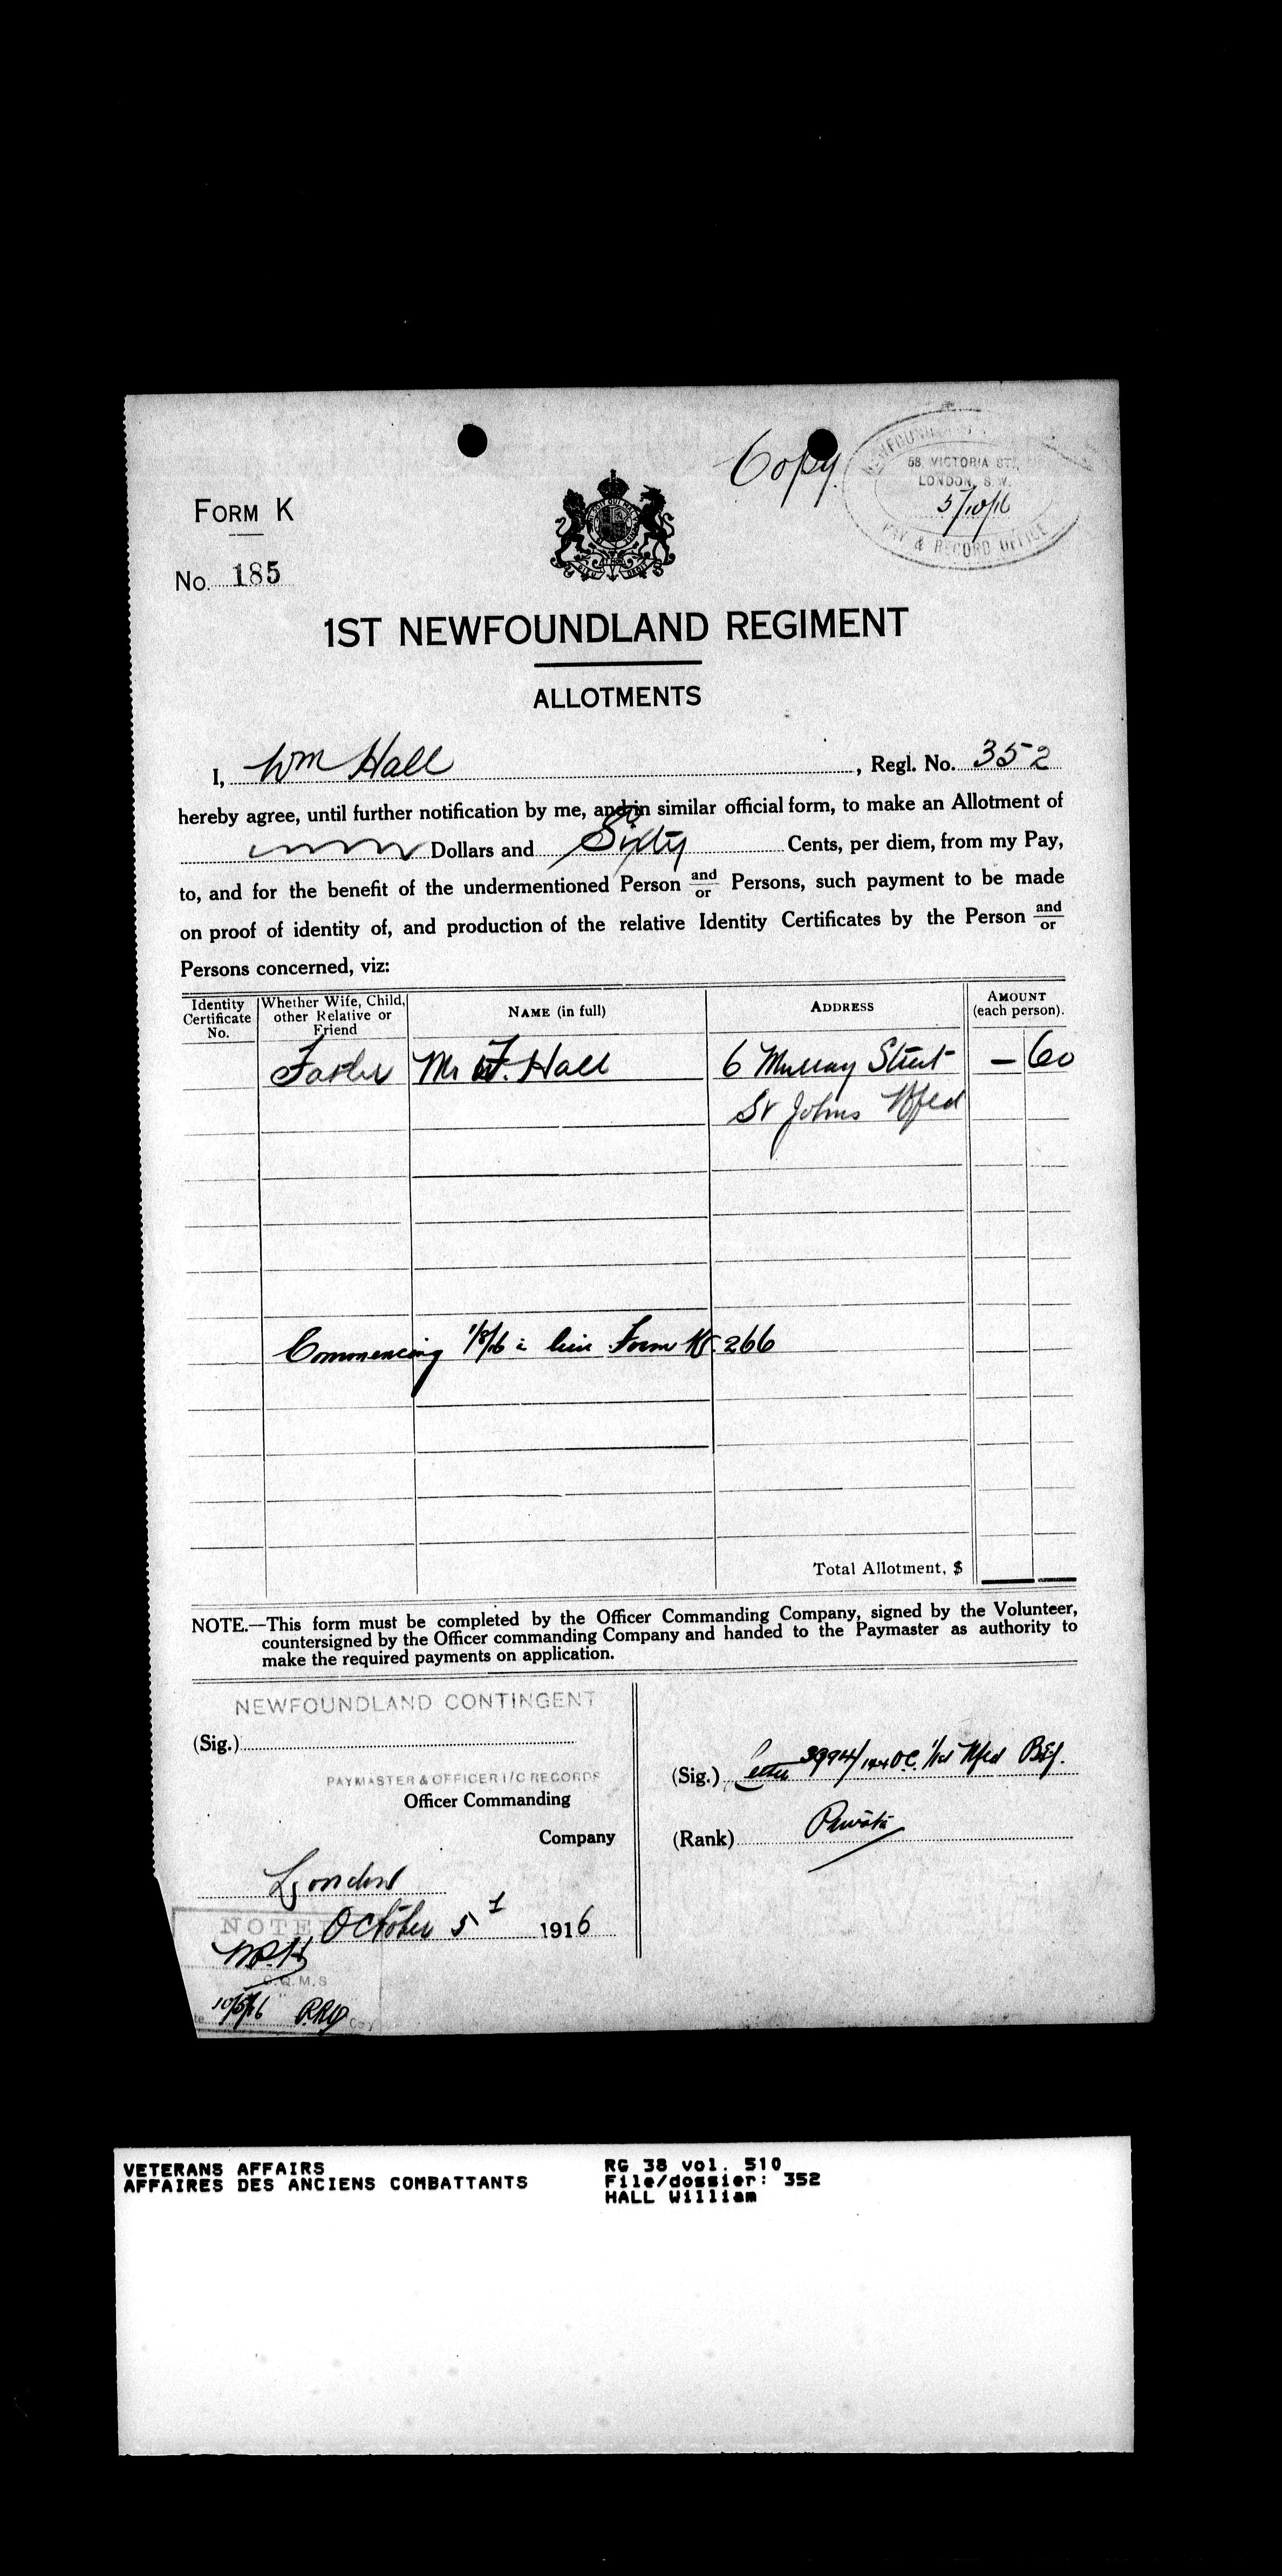 Copy.
NEWFOUNDLAND
58, VICTORIA ST.,
LONDON, S.W.
5/10/16
PAY & RECORD OFFICE
FORM K
No. 185
1ST NEWFOUNDLAND REGIMENT
ALLOTMENTS
I, Wm Hall, Regl. No. 352
hereby agree, until further notification by me, and in similar official form, to make an Allotment of
Dollars and Sixty Cents, per diem, from my Pay,
to, and for the benefit of the undermentioned Person and/or Persons, such payment to be made
on proof of identity of, and production of the relative Identity Certificates by the Person and/or
Persons concerned, viz:
Identity Certificate No. Whether Wife, Child, other Relative or Friend NAME (in full) ADDRESS AMOUNT (each person).
Father Mr F. Hall 6 Murray Street – 60
St Johns Nfld
Commencing 1/8/16 in lieu Form K. 266
Total Allotment, $
NOTE.—This form must be completed by the Officer Commanding Company, signed by the Volunteer,
countersigned by the Officer commanding Company and handed to the Paymaster as authority to
make the required payments on application.
NEWFOUNDLAND CONTINGENT
(Sig.)
PAYMASTER & OFFICER I/C RECORDS
Officer Commanding
Company
(Sig.) Letter 3994/ O.C. 1st Nfld
(Rank) Private
London
October 5 1916
NOTED
C.Q.M.S
10/5/16
VETERANS AFFAIRS
AFFAIRES DES ANCIENS COMBATTANTS
RG 38 vol. 510
File/dossier: 352
HALL William